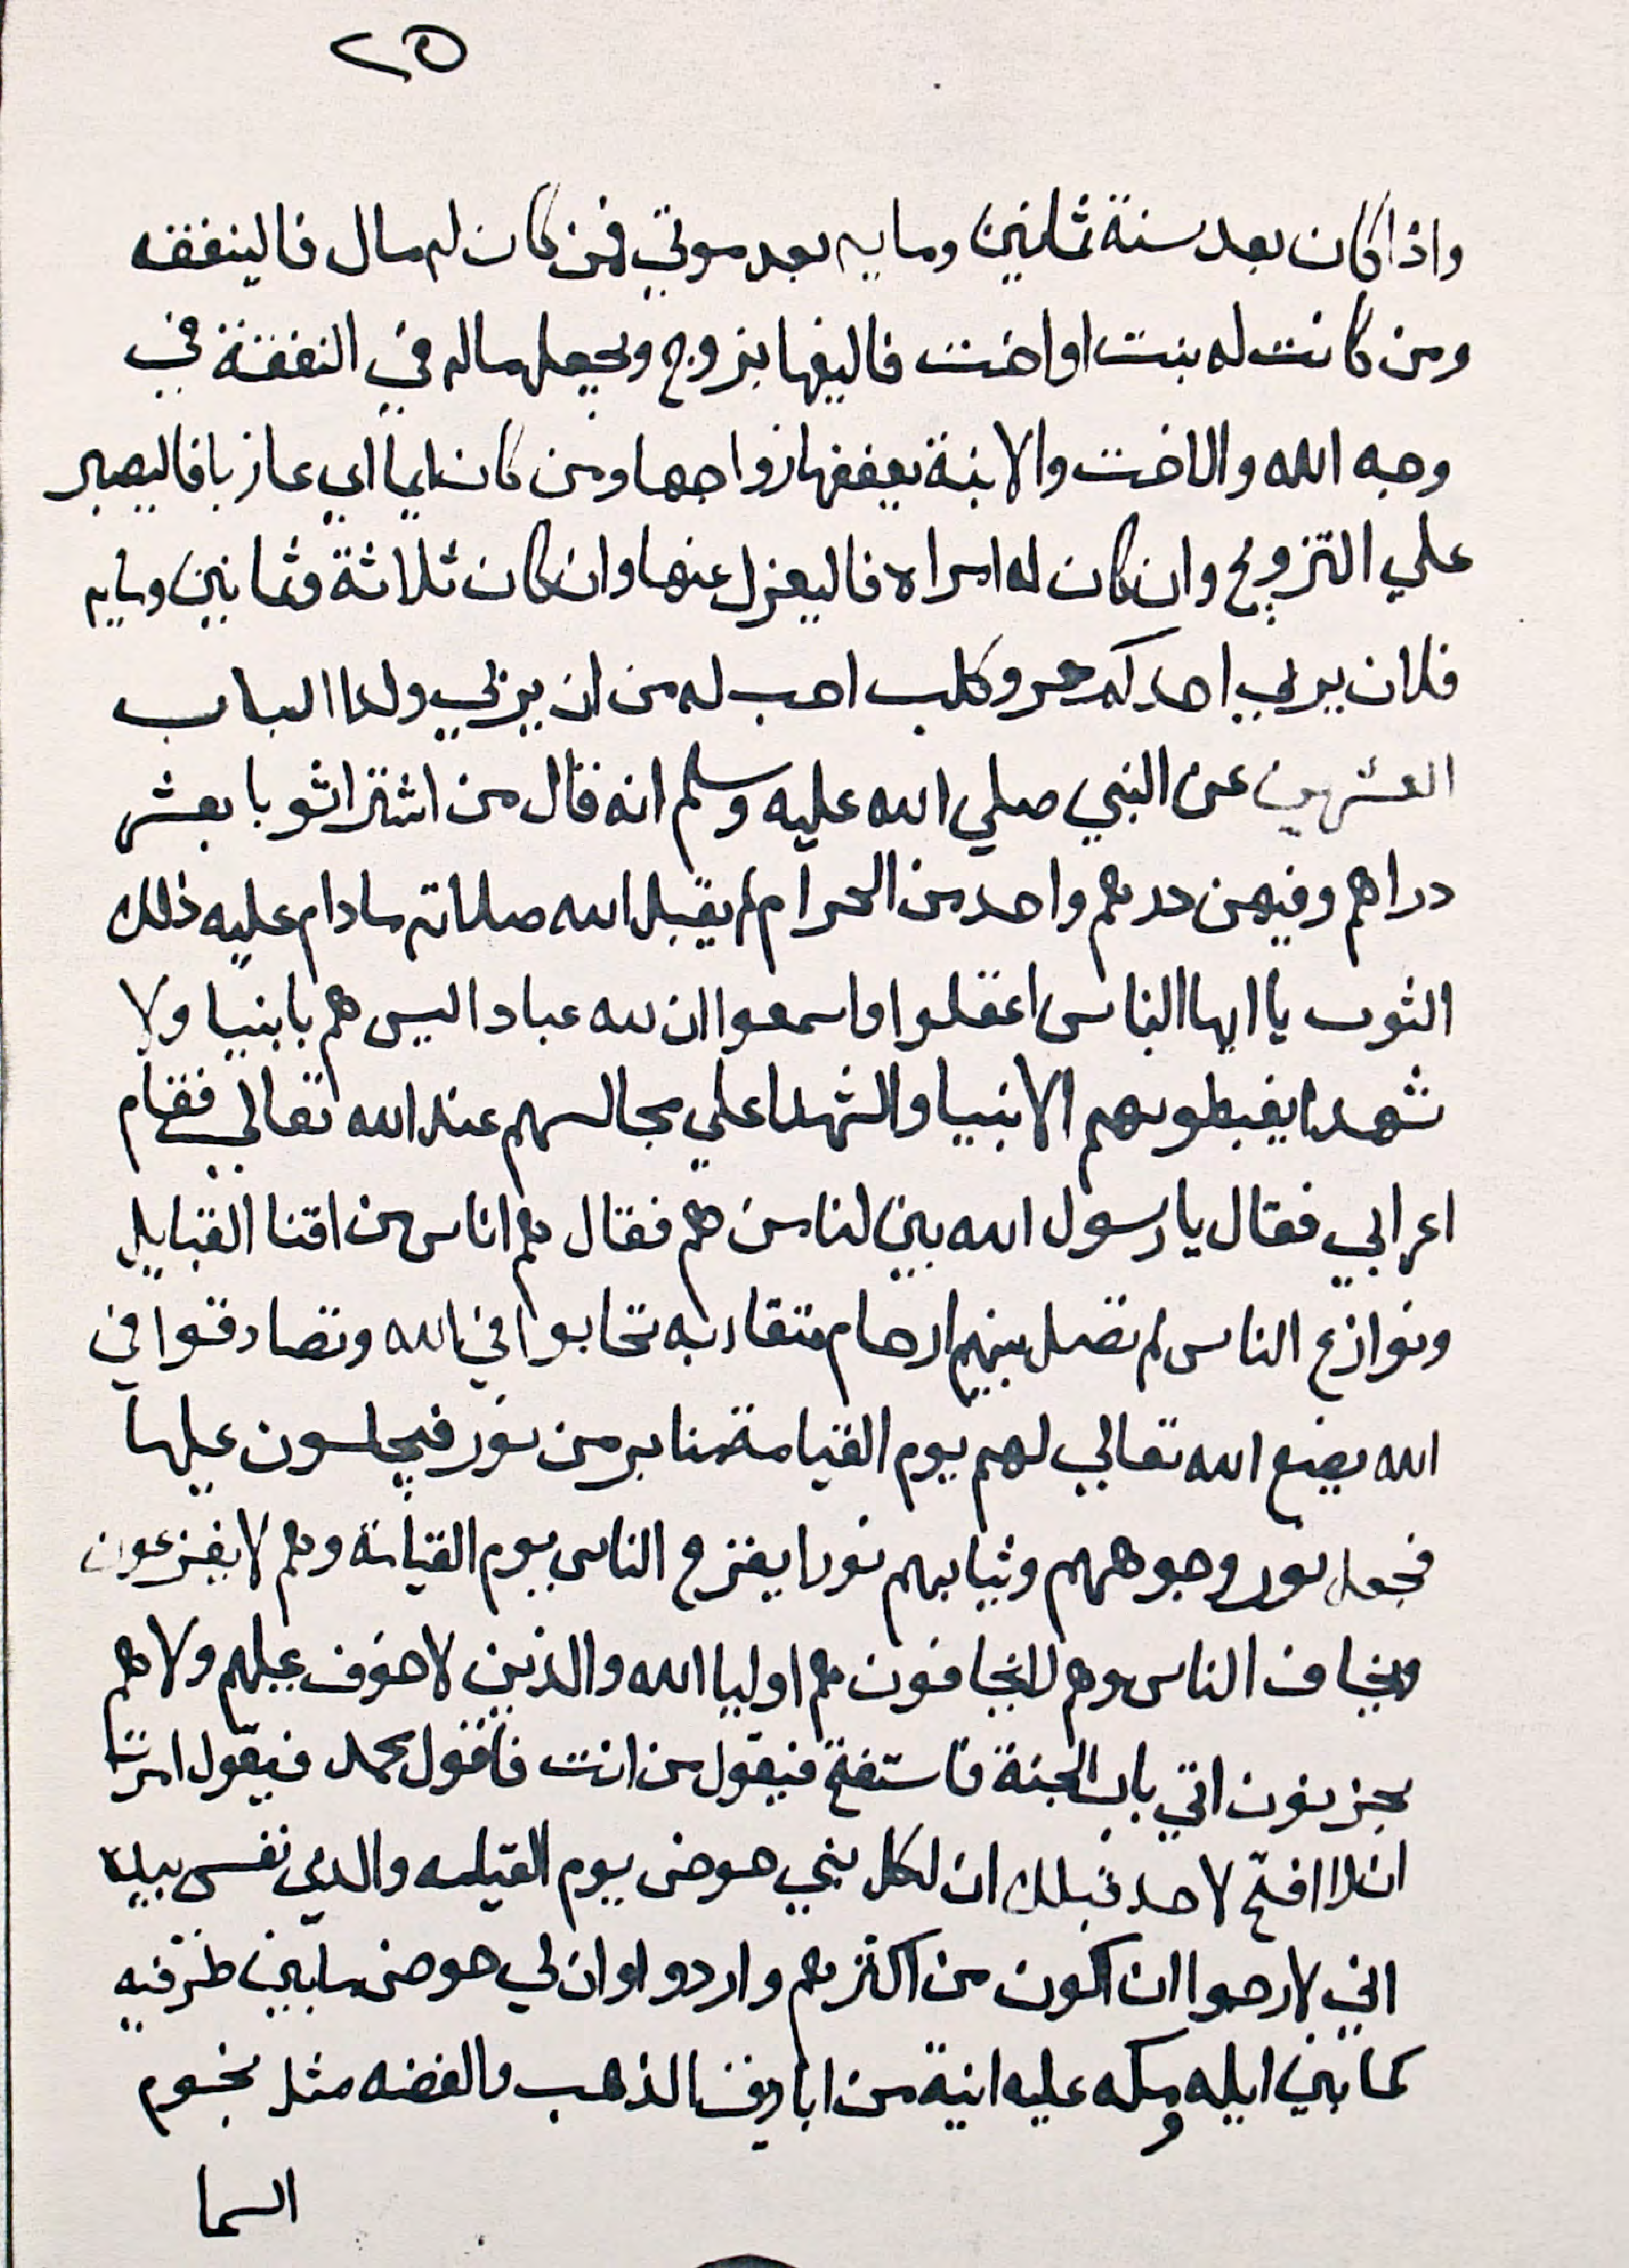 ٢٥
واذا كان بعد سنة ثمانين ومايه بعد موتي فمن كان له مال فالينفقه
ومن كانت له بنت او اخت فاليفها بزوج ويجعل ماله في النفقة في
وجه الله والاخت والابنة يعففها زواجها ومن كان ايما اي عازبا فاليصبر
علي التزويج وان كان له امراه فاليعزل عنها وان كان ثلاثة وثمانين ومايه
فلان يربي احدكم جرو كلب احب له من ان يربي ولدا الباب
العشرين عن النبي صلي الله عليه وسلم انه قال من اشترا ثوبا بعشر
دراهم وفيهن درهم واحد من الحرام لم يقبل الله صلاته مادام عليه ذلك
الثوب يا ايها الناس اعقلوا واسمعوا ان لله عبادا ليس هم بانبيا ولا
شهدا يغبطوهم الانبيا والشهدا علي مجالسهم عند الله تعالي فقام
اعرابي فقال يا رسول الله بين لنا من هم فقال هم اناس من افنا القبايل
ونوازع الناس لم تصل بينهم ارحام متقاربه تحابوا في الله وتصادقوا في
الله يضع الله تعالي لهم يوم القيامة منابر من نور فيجلسون عليها
فجعل نور وجوههم وثيابهم نورا يفزع الناس يوم القيامة وهم لا يفزعون
ويخاف الناس وهم لا يخافون هم اوليا الله والذين لا خوف عليهم ولا هم
يحزنون اتي باب الجنة فاستفتح فيقول من انت فاقول محمد فيقول امرت
ان لا افتح لاحد قبلك ان لكل نبي حوض يوم القيامه والذي نفسي بيده
اني لارجوا ان اكون من اكثرهم واردوا وان لي حوض مابين طرفيه
كما بين ايله ومكه عليه انية من اباريق الذهب والفضه مثل نجوم
السما